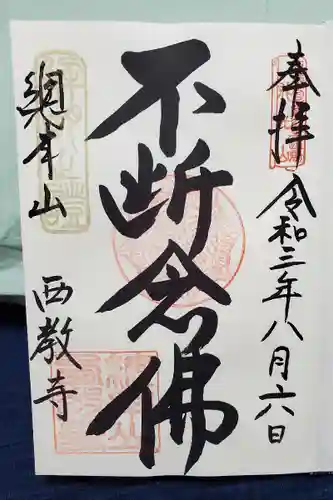 奉拝
令和三年八月六日
不断念佛
総本山
西教寺